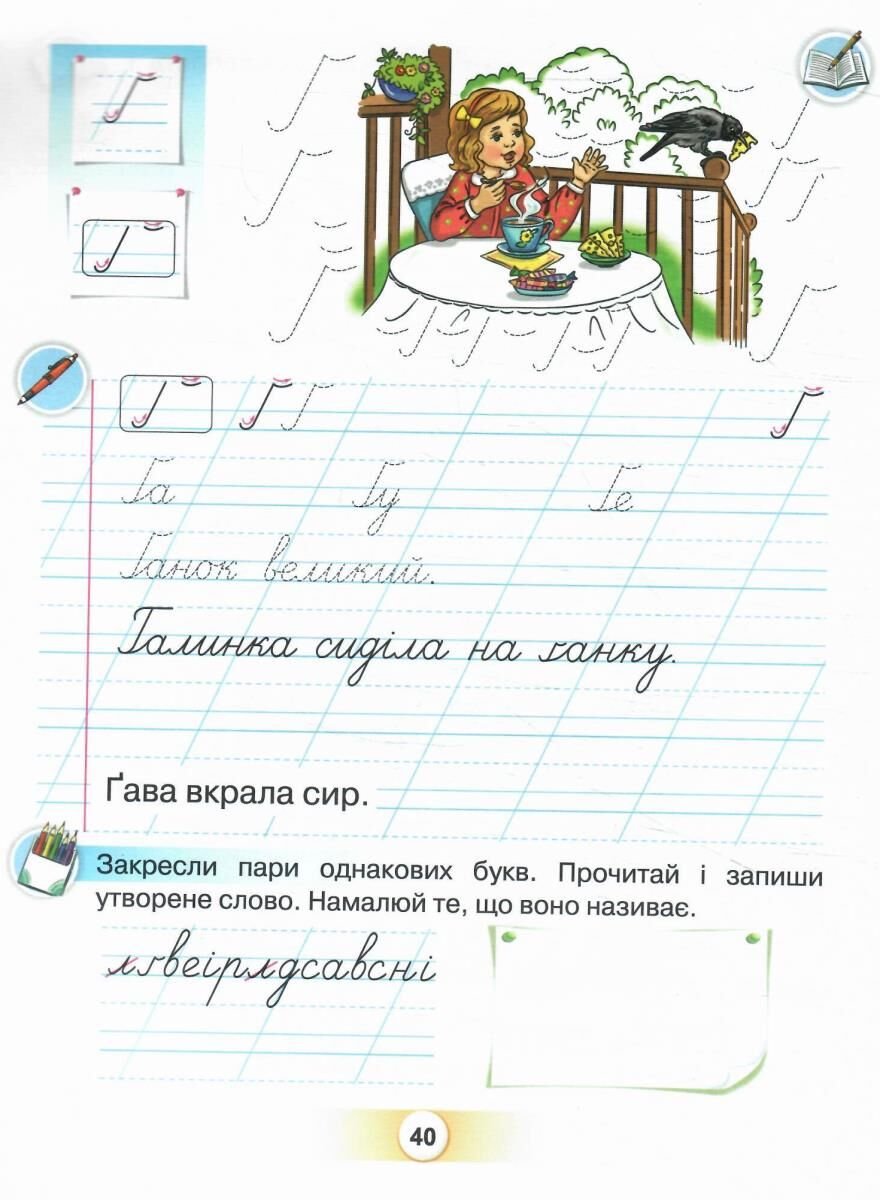 Ґ
Ґ
Ґ Ґ Ґ Ґ
Ґа Ґу Ґе
Ґанок великий.
Галинка сиділа на ґанку.
Ґава вкрала сир.
Закресли пари однакових букв. Прочитай і запиши
утворене слово. Намалюй те, що воно називає.
лґвеірлдсавсні
40